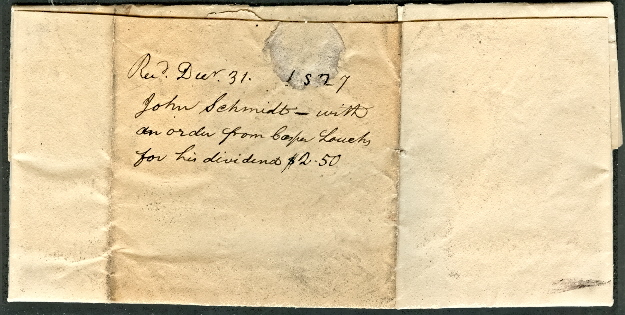 Recd. Decr. 31. 1827
John Schmidt – with
an order from Casper Laucks
for his dividend $2.50